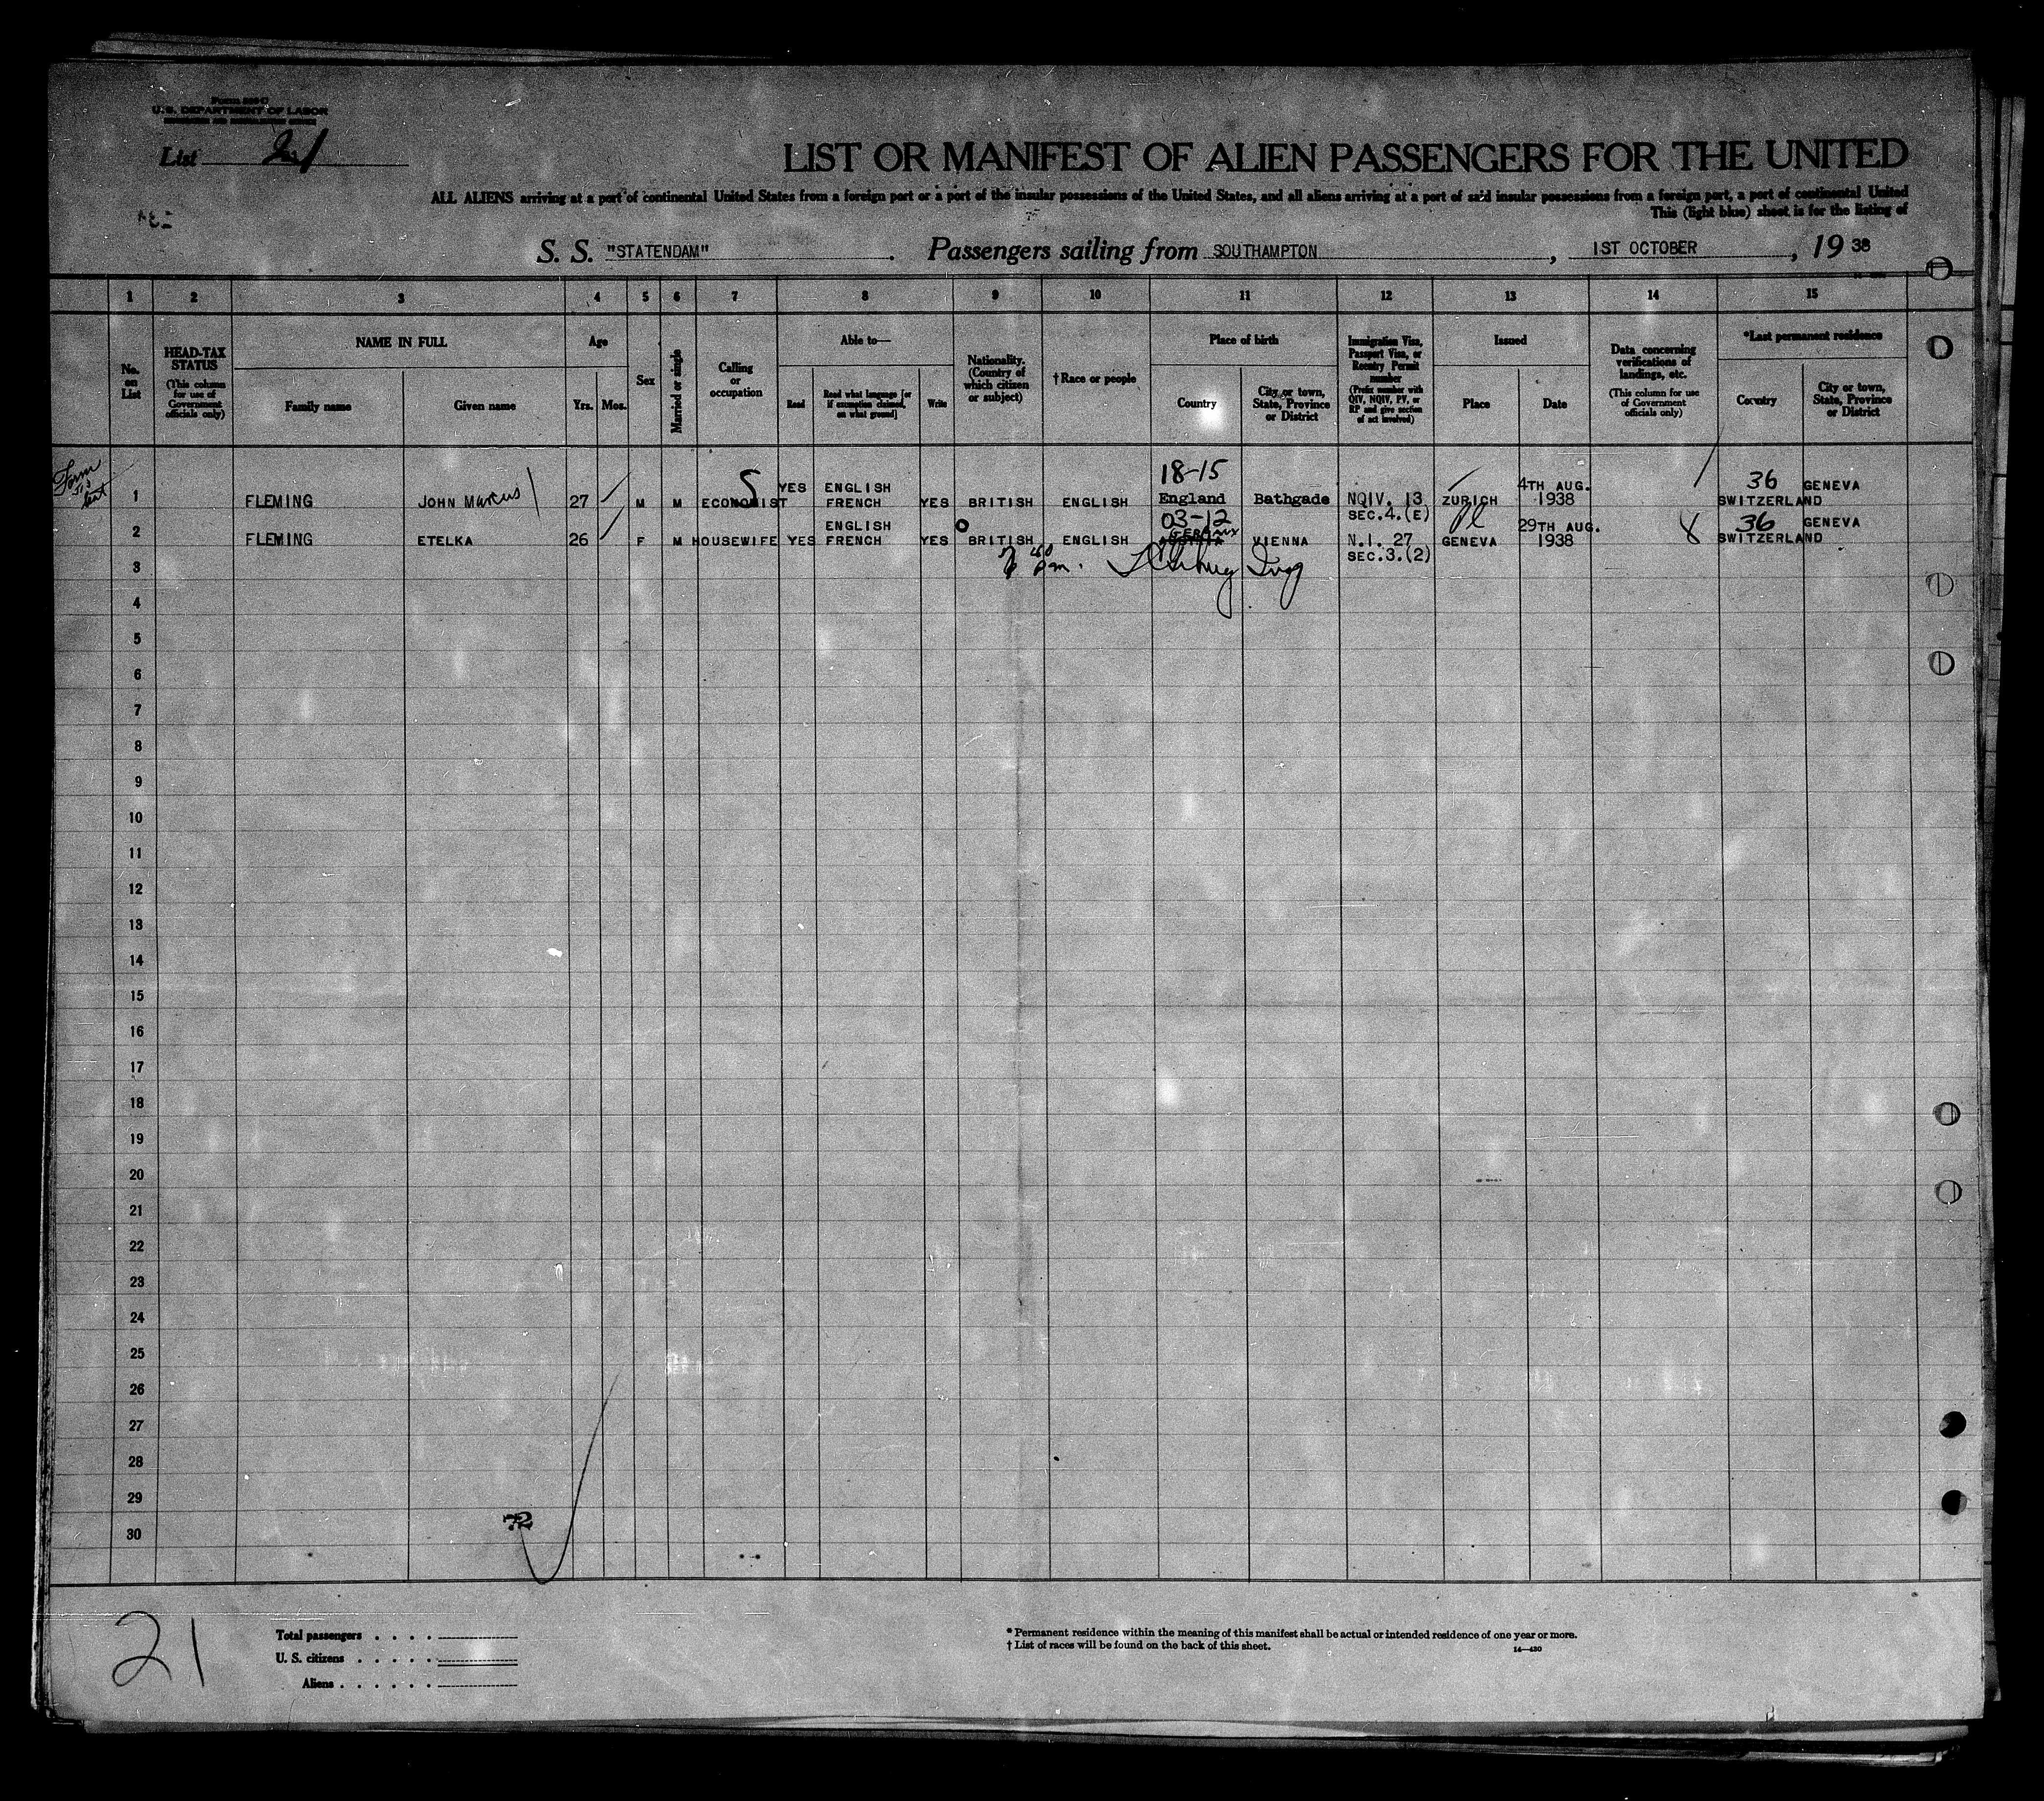 Form 500 C
U. S. DEPARTMENT OF LABOR
List
LIST OR MANIFEST OF ALIEN PASSENGERS FOR THE UNITED
ALL ALIENS arriving at a port of continental United States from a foreign port or a port of the insular possessions of the United States, and all aliens arriving at a port of said insular possessions from a foreign port, a port of continental United
This (light blue) sheet is for the listing of
S. S. "STATENDAM" . Passengers sailing from SOUTHAMPTON , 1ST OCTOBER , 19 38
1 2 3 4 5 6 7 8 9 10 11 12 13 14 15
No. on List
HEAD-TAX STATUS (This column for use of Government officials only)
NAME IN FULL
Family name
Given name
Age
Yrs. Mos.
Sex
Married or single
Calling or occupation
Able to—
Read
Read what language [or if exemption claimed, on what ground]
Write
Nationality. (Country of which citizen or subject)
† Race or people
Place of birth
Country
City or town, State, Province or District
Immigration Visa, Passport Visa, or Reentry Permit number (Prefix number with QIV, NQIV, PV, or RP and give section of act involved)
Issued
Place
Date
Data concerning verifications of landings, etc. (This column for use of Government officials only)
*Last permanent residence
Country
City or town, State, Province or District
18-15
1 FLEMING JOHN Marcus 27 M M ECONOMIST YES ENGLISH FRENCH YES BRITISH ENGLISH England Bathgade NQIV. 13 SEC.4.(E) ZURICH 4TH AUG. 1938 36 SWITZERLAND GENEVA
03-12
2 FLEMING ETELKA 26 F M HOUSEWIFE YES ENGLISH FRENCH YES BRITISH ENGLISH VIENNA N.I. 27 SEC.3.(2) GENEVA 29TH AUG. 1938 36 SWITZERLAND GENEVA
3
4
5
6
7
8
9
10
11
12
13
14
15
16
17
18
19
20
21
22
23
24
25
26
27
28
29
30
72
21
Total passengers . . . .
U. S. citizens . . . . .
Aliens . . . . . .
* Permanent residence within the meaning of this manifest shall be actual or intended residence of one year or more.
† List of races will be found on the back of this sheet.
14—430